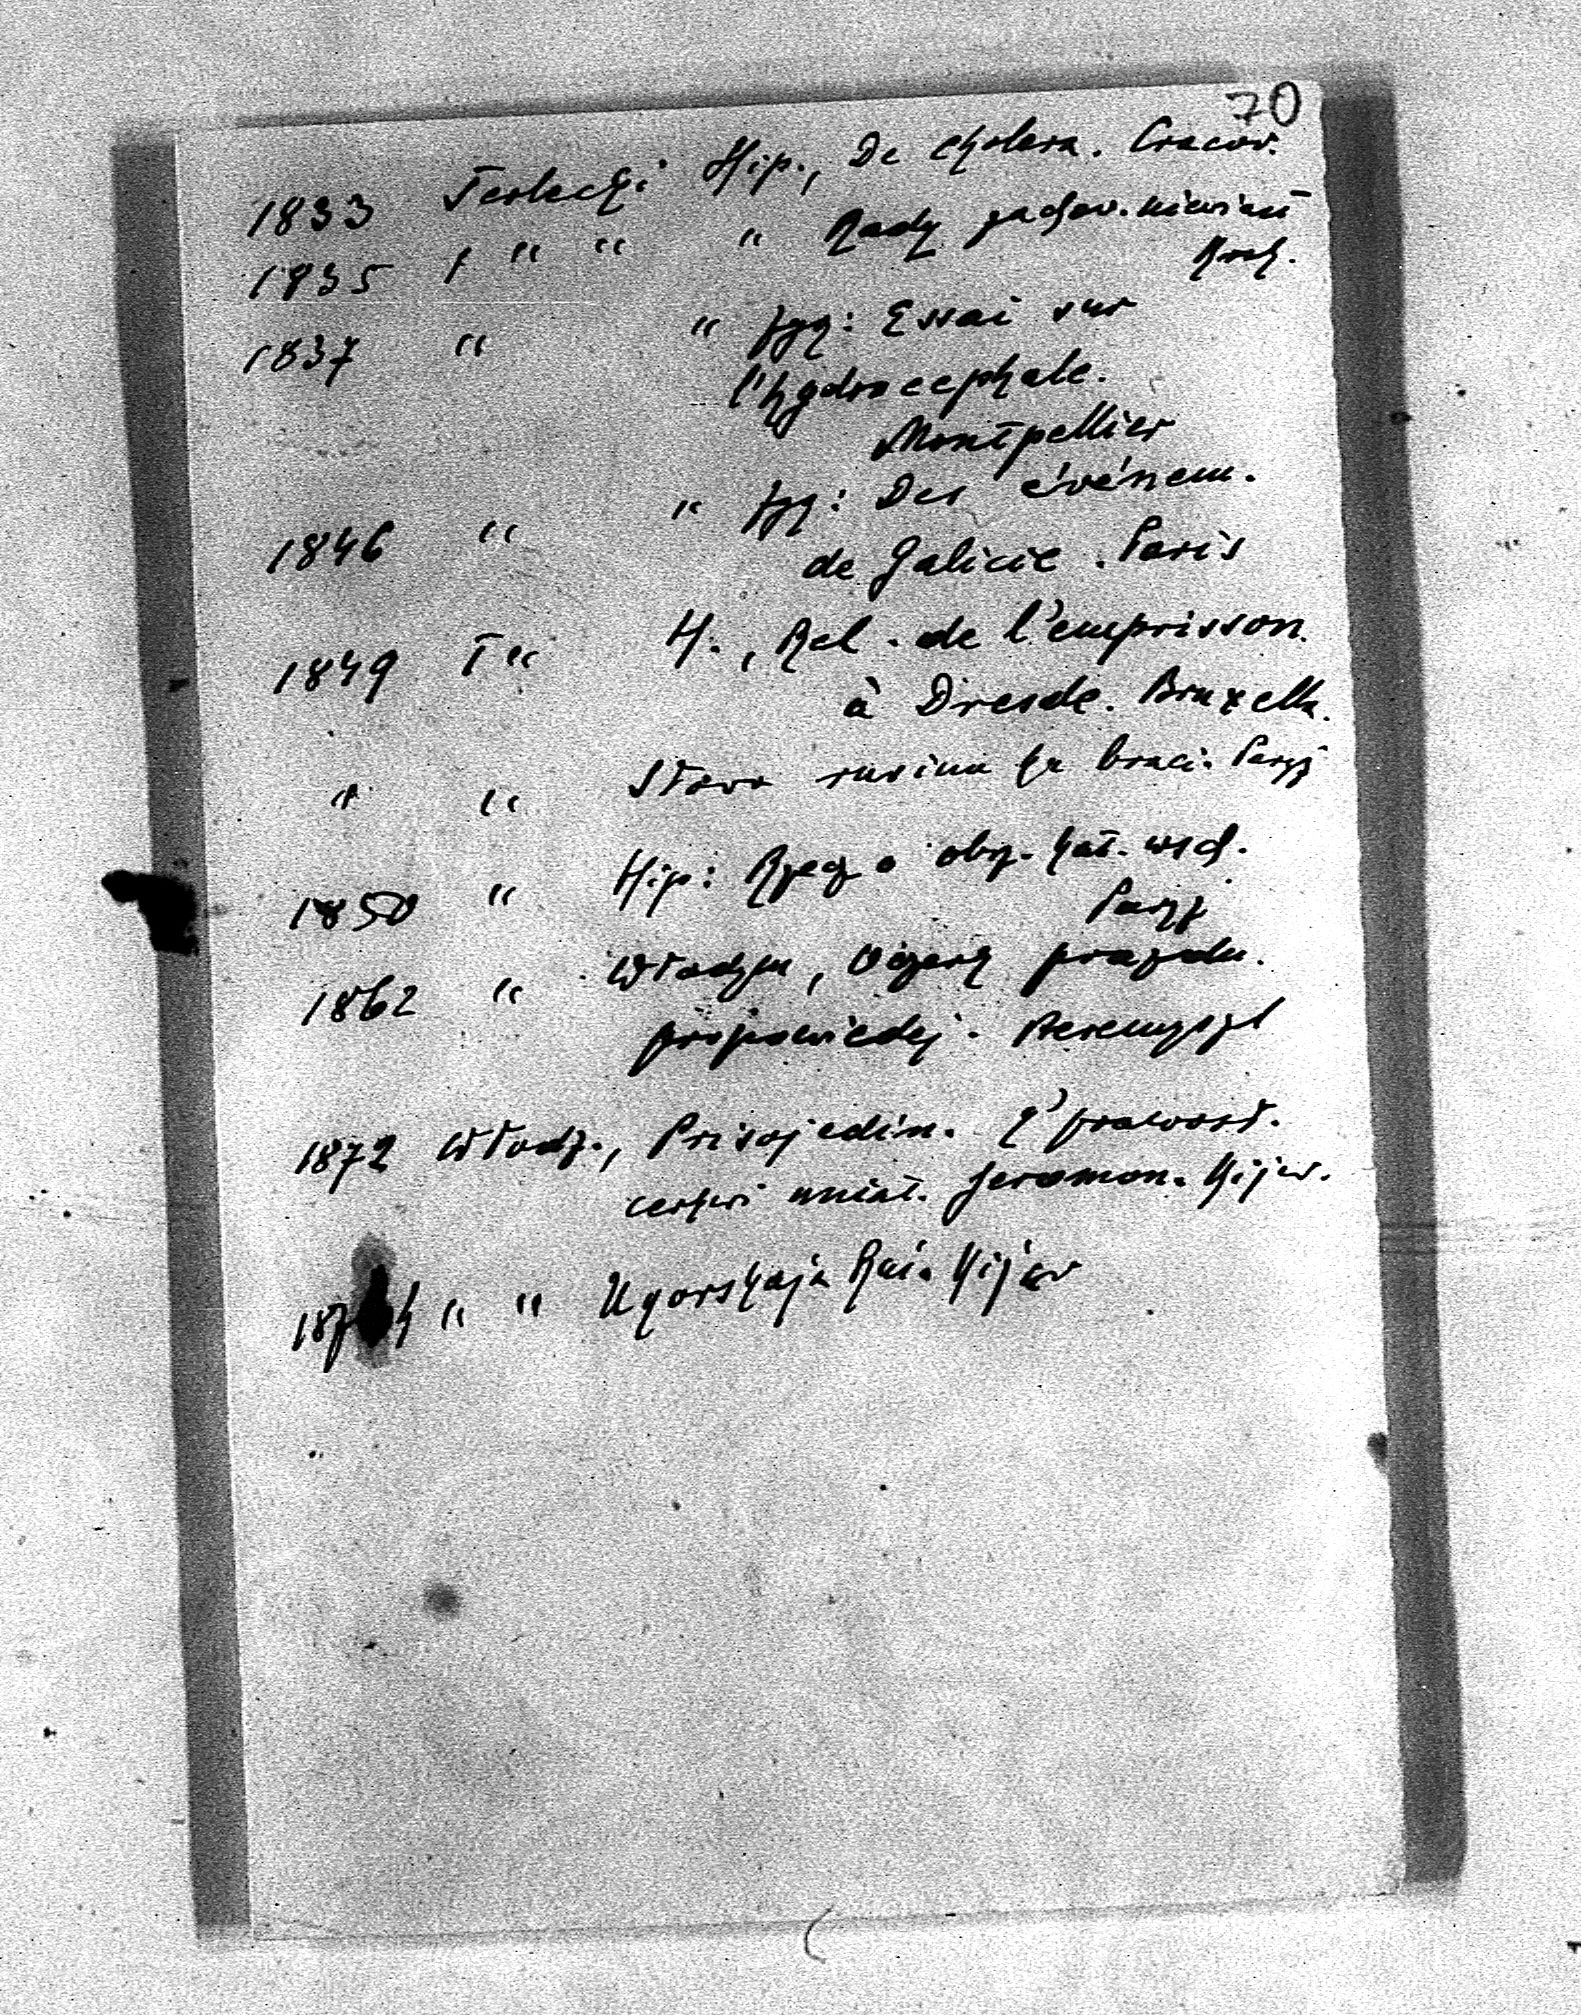 70
1833 Terlecki Hip., De cholera. Cracov.
1835 T " " " Rady zachow. niewiast
Krak.
1837 " " Hyg: Essai sur
l'hydrocephale.
Montpellier
1846 " " Hyg: Des événem.
de Galicie. Paris
1849 T " H., Rel. de l'emprisson.
à Dresde. Bruxell.
" " Słowo rusina ku braci. Paryż
1850 " Hip: Rzecz o obrz. kat. wsch.
Paryż
1862 " Włodzm, prazdn.
propowiedej. Peremyszl
1872 Włodz., Prisojedin. k' prawosł.
cerkwi uniat. Jeromon. Kijew.
" " Ugorskaja Ruś. Kijów